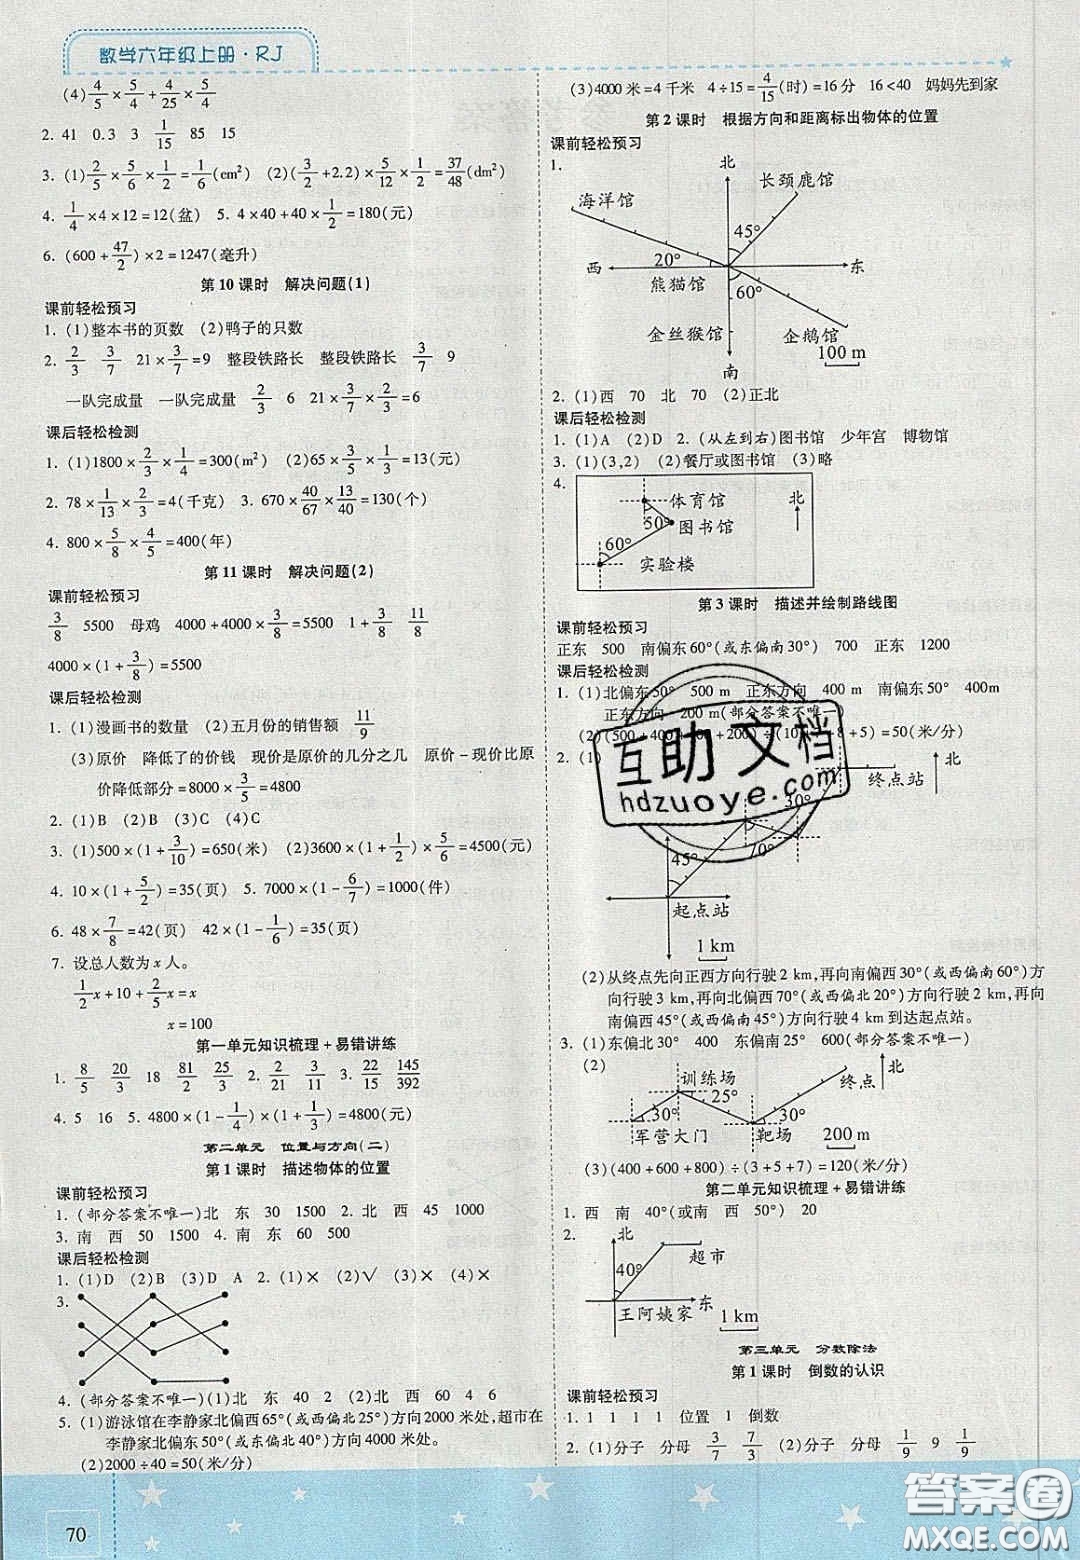 数学六年级上册·RJ
(4) 4/5×5/4+4/25×5/4
2. 41 0.3 3 1/15 85 15
3. (1) 2/5×5/6×1/2=1/6(cm²) (2)(3/2+2.2)×5/12×1/2=37/48(dm²)
4. 1/4×4×12=12(盆) 5. 4×40+40×1/2=180(元)
6. (600+47/2)×2=1247(毫升)
第10课时 解决问题(1)
课前轻松预习
1. (1)整本书的页数 (2)鸭子的只数
2. 2/3 3/7 21×3/7=9 整段铁路长 整段铁路长 3/7 9
一队完成量 一队完成量 2/3 6 21×3/7×2/3=6
课后轻松检测
1. (1)1800×2/3×1/4=300(m²) (2)65×3/5×1/3=13(元)
2. 78×1/13×2/3=4(千克) 3. 670×40/67×13/40=130(个)
4. 800×5/8×4/5=400(年)
第11课时 解决问题(2)
课前轻松预习
3/8 5500 母鸡 4000+4000×3/8=5500 1+3/8 11/8
4000×(1+3/8)=5500
课后轻松检测
1. (1)漫画书的数量 (2)五月份的销售额 11/9
(3)原价 降低了的价钱 现价是原价的几分之几 原价-现价比原
价降低部分=8000×3/5=4800
2. (1)B (2)B (3)C (4)C
3. (1)500×(1+3/10)=650(米) (2)3600×(1+1/2)×5/6=4500(元)
4. 10×(1+5/2)=35(页) 5. 7000×(1-6/7)=1000(件)
6. 48×7/8=42(页) 42×(1-1/6)=35(页)
7. 设总人数为x人。
1/2x+10+2/5x=x
x=100
第一单元知识梳理+易错讲练
1. 8/5 20/3 18 81/2 25/3 2. 2/21 3/11 3. 22/15 145/392
4. 5 16 5. 4800×(1-1/4)×(1+1/3)=4800(元)
第二单元 位置与方向(二)
第1课时 描述物体的位置
课前轻松预习
1. (部分答案不唯一)北 东 30 1500 2. 北 西 45 1000
3. 南 西 50 1500 4. 南 东 60 500
课后轻松检测
1. (1)D (2)B (3)D A 2. (1)× (2)√ (3)× (4)×
3.
4. (部分答案不唯一)(1)北 东 40 2 (2)北 西 60 4 6
5. (1)游泳馆在李静家北偏西65°(或西偏北25°)方向2000米处,超市在
李静家北偏东50°(或东偏北40°)方向4000米处。
(2)2000÷40=50(米/分)
70
(3)4000米=4千米 4÷15=4/15(时)=16分 16<40 妈妈先到家
第2课时 根据方向和距离标出物体的位置
课前轻松预习
1.
北
海洋馆 长颈鹿馆
45°
20°
西 东
熊猫馆 60°
金丝猴馆 企鹅馆
100 m
南
2. (1)西 70 北 70 (2)正北
课后轻松检测
1. (1)A (2)D 2. (从左到右)图书馆 少年宫 博物馆
3. (1)(3,2) (2)餐厅或图书馆 (3)略
4.
体育馆 北
50° 图书馆
60°
实验楼
第3课时 描述并绘制路线图
课前轻松预习
正东 500 南偏东60°(或东偏南30°) 700 正东 1200
课后轻松检测
1. (1)北偏东50° 500 m 正东方向 400 m 南偏东50° 400m
正东方向 200 m(部分答案不唯一)
8+5)=50(米/分)
2. (1)
终点站 北
30°
45° 70°
起点站
1 km
(2)从终点先向正西方向行驶2 km,再向南偏西30°(或西偏南60°)方
向行驶3 km,再向北偏西70°(或西偏北20°)方向行驶2 km,再向
南偏西45°(或西偏南45°)方向行驶4 km到达起点站。
3. (1)东偏北30° 400 东偏南25° 600(部分答案不唯一)
(2)
训练场 终点 北
30° 25° 30°
军营大门 靶场 200 m
(3)(400+600+800)÷(3+5+7)=120(米/分)
第二单元知识梳理+易错讲练
1. 西 南 40°(或南 西 50°) 20
2.
北 超市
40°
王阿姨家 东 1 km
第三单元 分数除法
第1课时 倒数的认识
课前轻松预习
1. 1 1 1 1 位置 1 倒数
2. (1)分子 分母 3/7 7/3 (2)分子 分母 1/9 9 1/9
互助文档
hdzuoye.com
答案圈
MXQE.COM